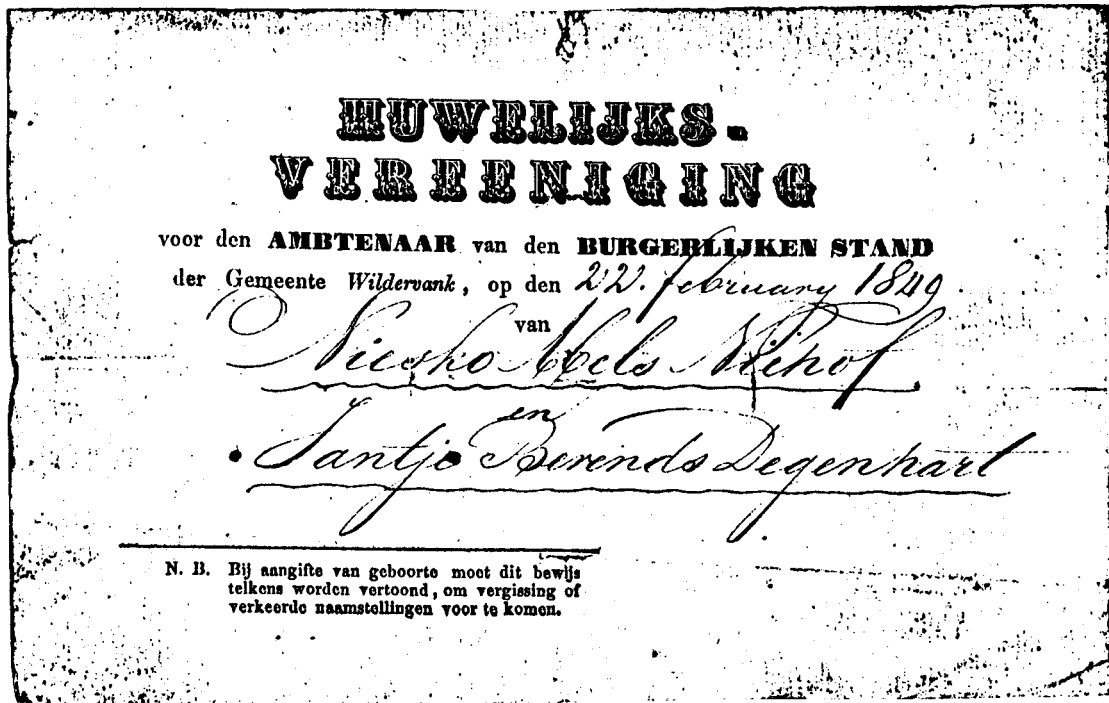 HUWELIJKS-
VEREENIGING
voor den AMBTENAAR van den BURGERLIJKEN STAND
der Gemeente Wildervank, op den 22. february 1849
van
Niehof
en
Jantje Berends Degenhart
N. B. Bij aangifte van geboorte moet dit bewijs
telkens worden vertoond, om vergissing of
verkeerde naamstellingen voor te komen.